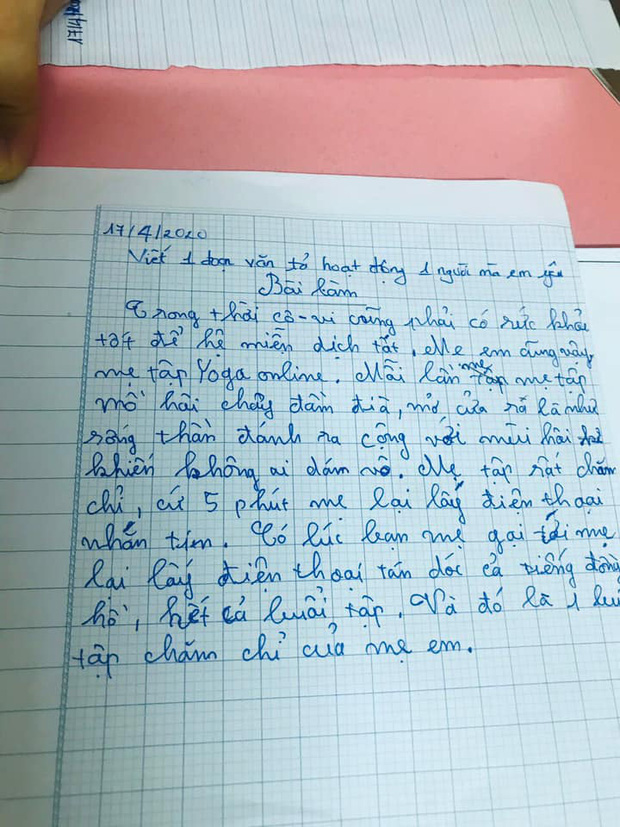 17/4/20
17/4/2020
Viết 1 đoạn văn tả hoạt động 1 người mà em yêu
Bài làm
Trong thời cô-vi cũng phải có sức khỏe
tốt để hệ miễn dịch tốt. Mẹ em cũng vậy
mẹ tập Yoga online. Mỗi lần mẹ tập
mồ hôi chảy đầm đìa, mở cửa ra là như
sóng thần đánh ra cộng với mùi hôi
khiến không ai dám vô. Mẹ tập rất chăm
chỉ, cứ 5 phút mẹ lại lấy điện thoại
nhắn tin. Có lúc bạn mẹ gọi tới mẹ
lại lấy điện thoại tán dóc cả tiếng đồng
hồ, hết cả buổi tập. Và đó là 1
tập chăm chỉ của mẹ em.